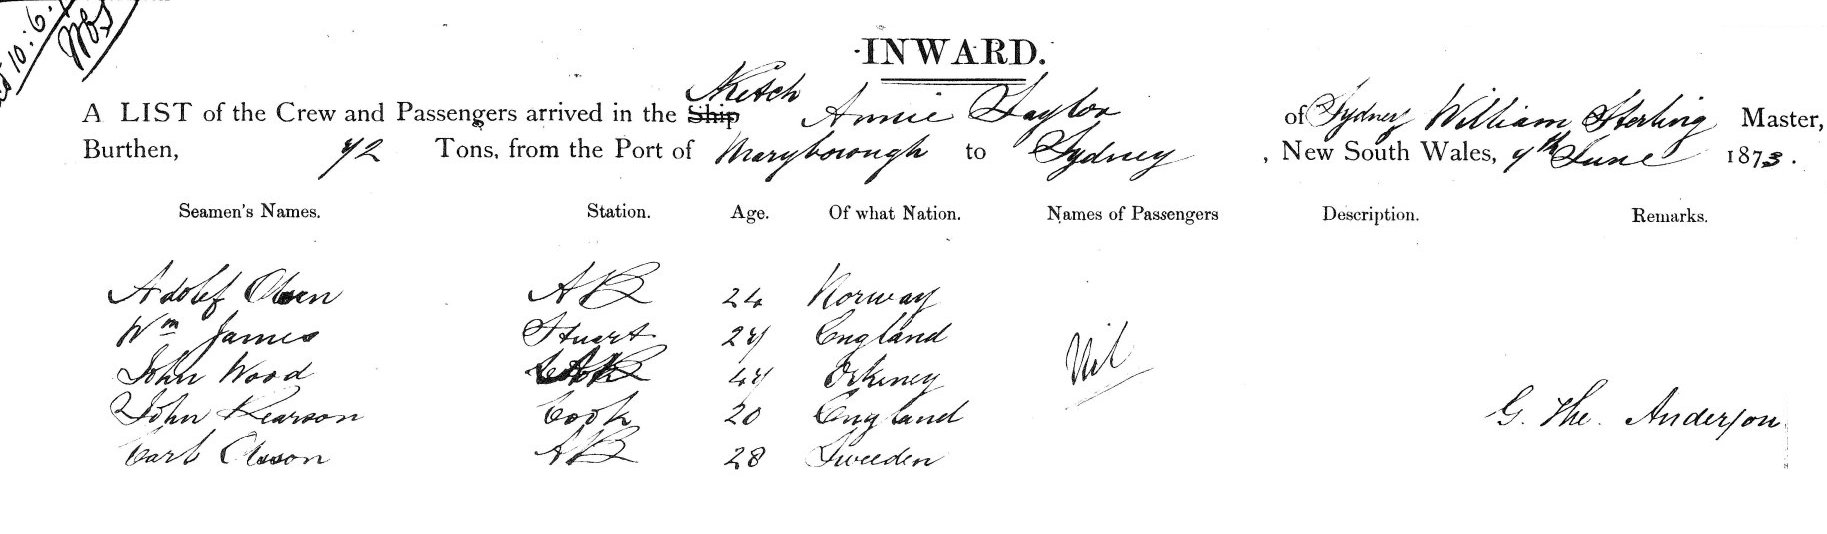 10:6.
INWARD.
A LIST of the Crew and Passengers arrived in the Ship Ketch Annie Taylor of Sydney William Sterling Master,
Burthen, 72 Tons, from the Port of Maryborough to Sydney, New South Wales, 7th June 1873.
Seamen's Names. Station. Age. Of what Nation. Names of Passengers Description. Remarks.
Adolf Olsen AB 24 Norway
Wm James Stuart 27 England
John Wood AB 47 Orkeney Nil
John Pearson Cook 20 England G. The. Anderson
Carl Olsson AB 28 Sweeden